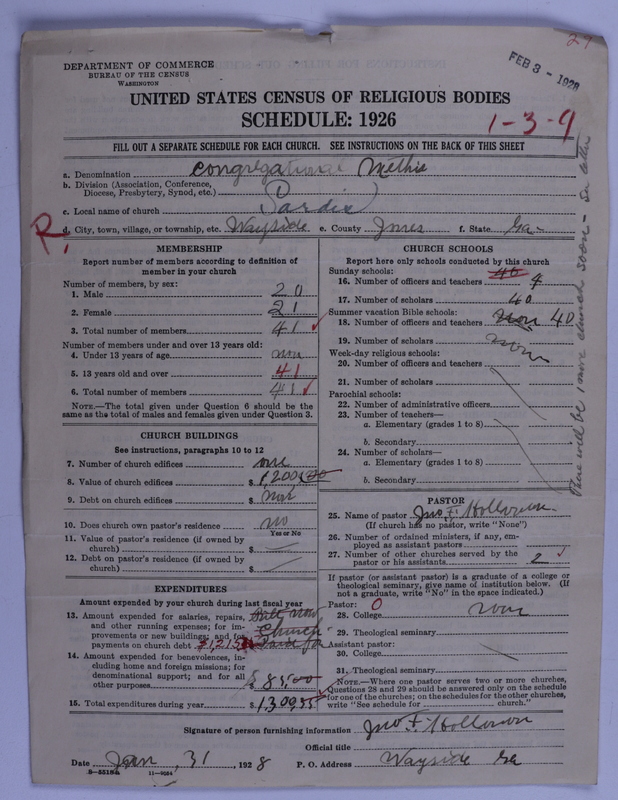 29
FEB 3 - 1928
DEPARTMENT OF COMMERCE
BUREAU OF THE CENSUS
WASHINGTON
UNITED STATES CENSUS OF RELIGIOUS BODIES
SCHEDULE: 1926
1-3-9
FILL OUT A SEPARATE SCHEDULE FOR EACH CHURCH. SEE INSTRUCTIONS ON THE BACK OF THIS SHEET
a. Denomination Congregational Methis
b. Division (Association, Conference,
Diocese, Presbytery, Synod, etc.)
c. Local name of church Sardis
R, d. City, town, village, or township, etc. Wayside e. County Jones f. State Ga-
There will be 1 more church soon - See letter
MEMBERSHIP
Report number of members according to definition of
member in your church
Number of members, by sex:
1. Male 20
2. Female 21
3. Total number of members 41 ✓
Number of members under and over 13 years old:
4. Under 13 years of age non
5. 13 years old and over 41
6. Total number of members 41 ✓
NOTE.—The total given under Question 6 should be the
same as the total of males and females given under Question 3.
CHURCH BUILDINGS
See instructions, paragraphs 10 to 12
7. Number of church edifices one
8. Value of church edifices $ 1,200.00
9. Debt on church edifices $ non
10. Does church own pastor's residence no
Yes or No
11. Value of pastor's residence (if owned by
church) $
12. Debt on pastor's residence (if owned by
church) $
EXPENDITURES
Amount expended by your church during last fiscal year
13. Amount expended for salaries, repairs, Built now
and other running expenses; for im- Church
provements or new buildings; and for
payments on church debt Paid for
14. Amount expended for benevolences, in-
cluding home and foreign missions; for
denominational support; and for all
other purposes $ 85.00
15. Total expenditures during year $ 1,300.55
CHURCH SCHOOLS
Report here only schools conducted by this church
Sunday schools:
16. Number of officers and teachers 40 4
17. Number of scholars 40
Summer vacation Bible schools:
18. Number of officers and teachers non 40
19. Number of scholars non
Week-day religious schools:
20. Number of officers and teachers
21. Number of scholars
Parochial schools:
22. Number of administrative officers
23. Number of teachers—
a. Elementary (grades 1 to 8)
b. Secondary
24. Number of scholars—
a. Elementary (grades 1 to 8)
b. Secondary
PASTOR
25. Name of pastor Jno F. Holloman
(If church has no pastor, write "None")
26. Number of ordained ministers, if any, em-
ployed as assistant pastors
27. Number of other churches served by the
pastor or his assistants 2 ✓
If pastor (or assistant pastor) is a graduate of a college or
theological seminary, give name of institution below. (If
not a graduate, write "No" in the space indicated.)
Pastor: 0
28. College non
29. Theological seminary
Assistant pastor:
30. College
31. Theological seminary
NOTE.—Where one pastor serves two or more churches,
Questions 28 and 29 should be answered only on the schedule
for one of the churches; on the schedules for the other churches,
write "See schedule for church."
Signature of person furnishing information Jno F. Holloman
Official title
Date Jan 31, 1928 P. O. Address Wayside Ga
8-5518a 11-9054